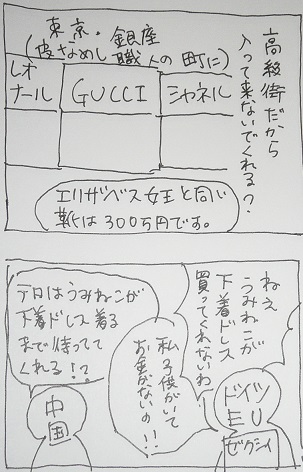 東京・銀座
(皮なめし職人の町に)
高級街だから
入って来ないでくれる?
レオ
ナール
GUCCI
シャネル
エリザベス女王と同じ
靴は300万円です。
ねえ
うみねこが
下着ドレス
買ってくれないわ
私子供がいて
お金がないの!!
ドイツ
EU
ゼクシィ
テロはうみねこが
下着ドレス着る
まで待ってて
くれる!?
中国